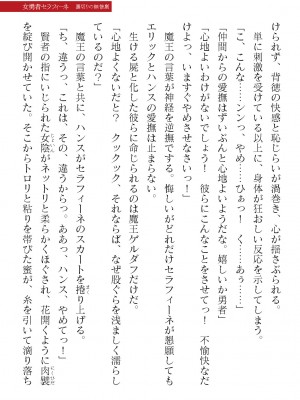 女勇者セラフィーネ 裏切りの触覚敵
けられず、背徳の快感と恥じらいが渦巻き、心が揺さぶられる。
単に刺激を受けている以上に、身体が狂おしい反応を示してしまう。
「こ、こんな……ンンっ、やめ……ひぁっ！ く……ぁあっ」
「仲間からの愛撫はずいぶんと心地よいようだな。嬉しいか勇者」
「心地よいわけがないでしょう！ 彼らにこんなことをさせて……不愉快なだ
けよっ、いますぐやめさせなさいっ！」
エリックとハンスの愛撫は止まらない。
生ける屍と化した彼らに命じられるのは魔王ゲルダフだけだ。
魔王の言葉が神経を逆撫でする。悔しいがどれだけセラフィーネが懇願しても
「心地よくないだと？ クックック、それならば、なぜ股ぐらを浅ましく濡らし
ているのだ？」
魔王の言葉と共に、ハンスがセラフィーネのスカートを捲り上げる。
「ち、違うっ、これは、その、違うからっ。ああっ、ハンス、やめてっ！」
賢者の指にいじられた女陰がネットリと柔らかくほぐされ、花開くように肉襞
を綻び開かせていた。そこからトロリと粘りを帯びた蜜が、糸を引いて滴り落ち